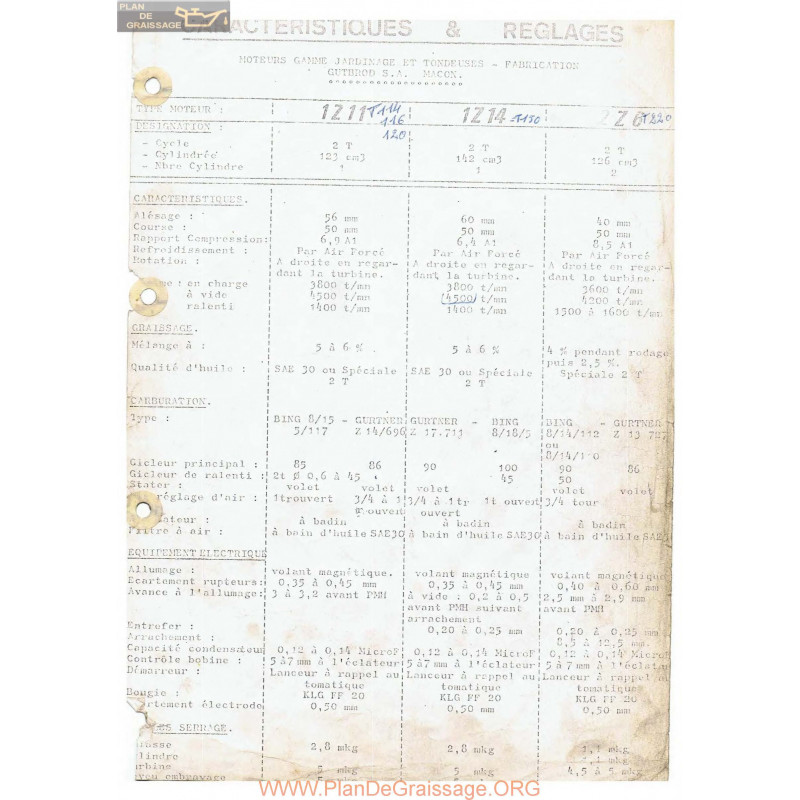 PLAN
DE
GRAISSAGE
CARACTERISTIQUES & REGLAGES
MOTEURS GAMME JARDINAGE ET TONDEUSES - FABRICATION
GUTBROD S.A. MACON.
TYPE MOTEUR : 1Z11 T114 1Z14 T130 2Z6 T220
116
120
DESIGNATION :
- Cycle 2 T 2 T 2 T
- Cylindrée 123 cm3 142 cm3 126 cm3
- Nbre Cylindre 1 1 2
CARACTERISTIQUES.
Alésage : 56 mm 60 mm 40 mm
Course : 50 mm 50 mm 50 mm
Rapport Compression: 6,9 A1 6,4 A1 8,5 A1
Refroidissement : Par Air Forcé Par Air Forcé Par Air Forcé
Rotation : A droite en regar- A droite en regar- A droite en regar-
dant la turbine. dant la turbine. dant la turbine.
: en charge 3800 t/mn 3800 t/mn 3600 t/mn
à vide 4500 t/mn (4500) t/mn 4200 t/mn
ralenti 1400 t/mn 1400 t/mn 1500 à 1600 t/mn
GRAISSAGE.
Mélange à : 5 à 6 % 5 à 6 % 4 % pendant rodage
puis 2,5 %.
Qualité d'huile : SAE 30 ou Spéciale SAE 30 ou Spéciale Spéciale 2 T
2 T 2 T
CARBURATION.
Type : BING 8/15 - GURTNER GURTNER - BING BING - GURTNER
5/117 Z 14/696 Z 17.711 8/18/5 8/14/112 Z 13 7
ou
8/14/110
Gicleur principal : 85 86 90 100 90 86
Gicleur de ralenti : 2t Ø 0,6 à 45 45 50
Stater : volet volet volet volet volet
réglage d'air : 1trouvert 3/4 à 1 3/4 à 1tr 1t ouvert 3/4 tour
trouvert ouvert
ateur : à badin à badin à badin
Filtre à air : à bain d'huile SAE30 à bain d'huile SAE30 à bain d'huile SAE
EQUIPEMENT ELECTRIQUE
Allumage : volant magnétique. volant magnétique volant magnétiqu
Ecartement rupteurs: 0,35 à 0,45 mm 0,35 à 0,45 mm 0,40 à 0,60 mm
Avance à l'allumage: 3 à 3,2 avant PMH à vide : 0,2 à 0,5 2,5 mm à 2,9 mm
avant PMH suivant avant PMH
arrachement
Entrefer : 0,20 à 0,25 mm 0,20 à 0,25 mm
Arrachement : 8,5 à 12,5 mm.
Capacité condensateur 0,12 à 0,14 MicroF 0,12 à 0,14 MicroF 0,12 à 0,14 Micro
Contrôle bobine : 5 à7 mm à l'éclateur 5 à7 mm à l'éclateur 5 à 7 mm à l'éclateu
Démarreur : Lanceur à rappel au Lanceur à rappel au Lanceur à rappel au
tomatique tomatique tomatique
Bougie : KLG FF 20 KLG FF 20 KLG FF 20
artement électrode 0,50 mm 0,50 mm 0,50 mm
ES SERRAGE.
asse 2,8 mkg 2,8 mkg 1,1 mkg
lindre 1,1 mkg
urbine 5 mkg 5 mkg 4,5 à 5 mkg
oyeu embrayage
www.PlanDeGraissage.ORG